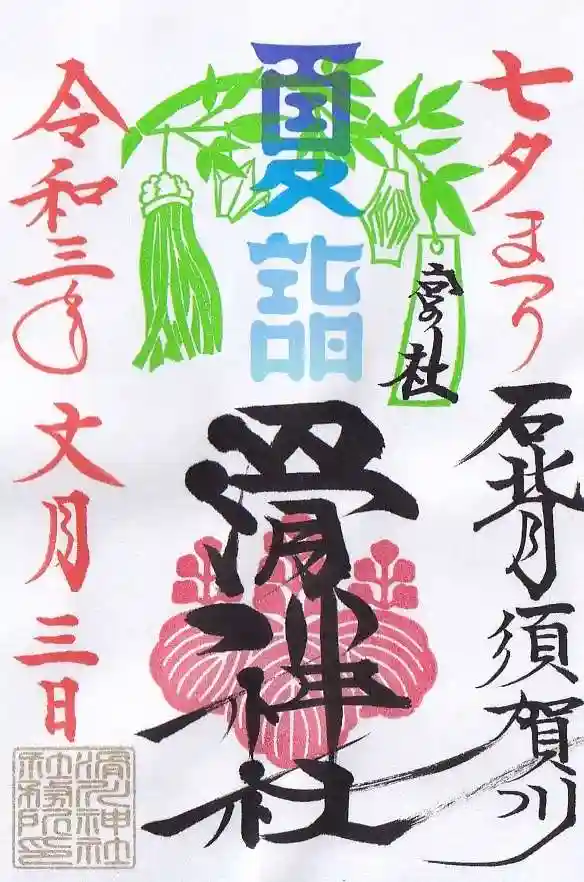 七夕まつり
石背 須賀川
夏詣
宮の社
滑川神社
令和三年 文月 三日
滑川神社
社務所印